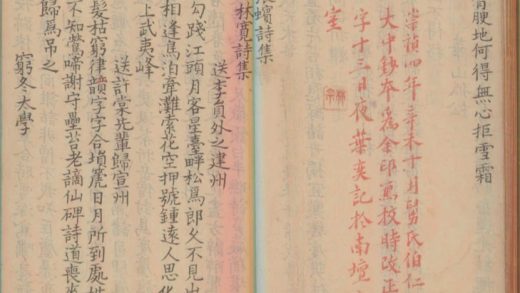 骨鯁地何得無心拒雪霜
崇禎四年辛未十月舅氏伯仁
大中鈔本爲余印寫校時改正
字十三日夜葉奕記於南壇
室
蠙詩集
林寬詩集
送李員外之建州
勾踐江頭月客星臺畔松爲郎久不見出
相逢鳥泊牽灘索花空押號鍾遠人思化
上武夷峰
送許棠先輩歸宣州
髮枯窮律韻字字合塤箎日月所到處姓
不知鶯啼謝守壘苔老謫仙碑詩道喪來
歸爲弔之
窮冬太學